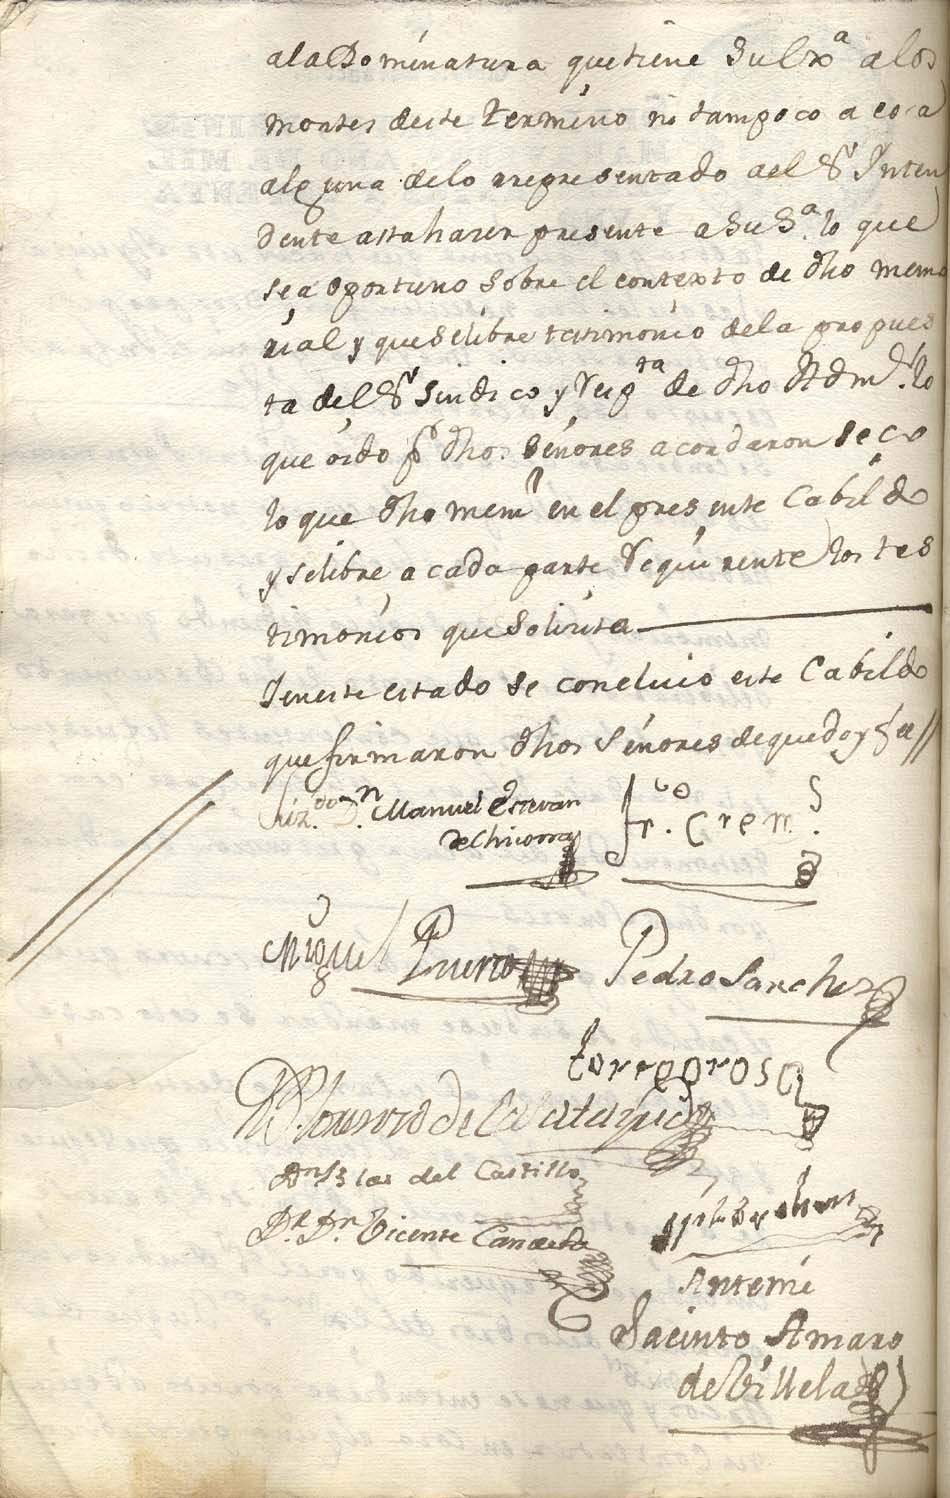 ala Dominatura que tiene Su Exª a los
montes deste termino ni tampoco a cosa
alguna delo rrepresentado ael Sr Ynten
dente asta hazer presente a Su Sª. lo que
sea oportuno sobre el contexto de dho memo
rial y que se libre testimonio dela propues
ta del Sr Sindico y Respta de dho Adm.r lo
que oido pr dhos señores acordaron se co
lo que dho meml en el presente Cabildo
y se libre a cada parte Requirente los tes
timonios que solicita
Yen este estado se concluio este Cabildo
que firmaron dhos Señores de que doy fee //
Liz.do Dn. Manuel Estevan
de Chicorra
Frco. Crem.s
Miguel Puerto
Pedro Sanchez
torregrosa
Dn Lorenzo de Calatayud
Dn Blas del Castillo
Dr. Dn Vicente Candela
Antemi
Jacinto Amaro
de Villela